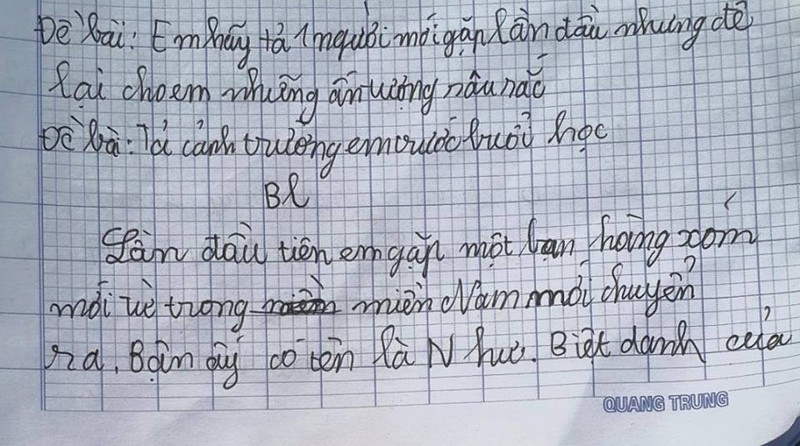 Đề bài: Em hãy tả 1 người mới gặp lần đầu nhưng để
lại cho em những ấn tượng sâu sắc
Đề bài: Tả cảnh trường em trước buổi học
Bl
Lần đầu tiên em gặp một bạn hàng xóm
mới về trong miền Nam mới chuyển
ra. Bạn ấy có tên là Như. Biệt danh của
QUANG TRUNG